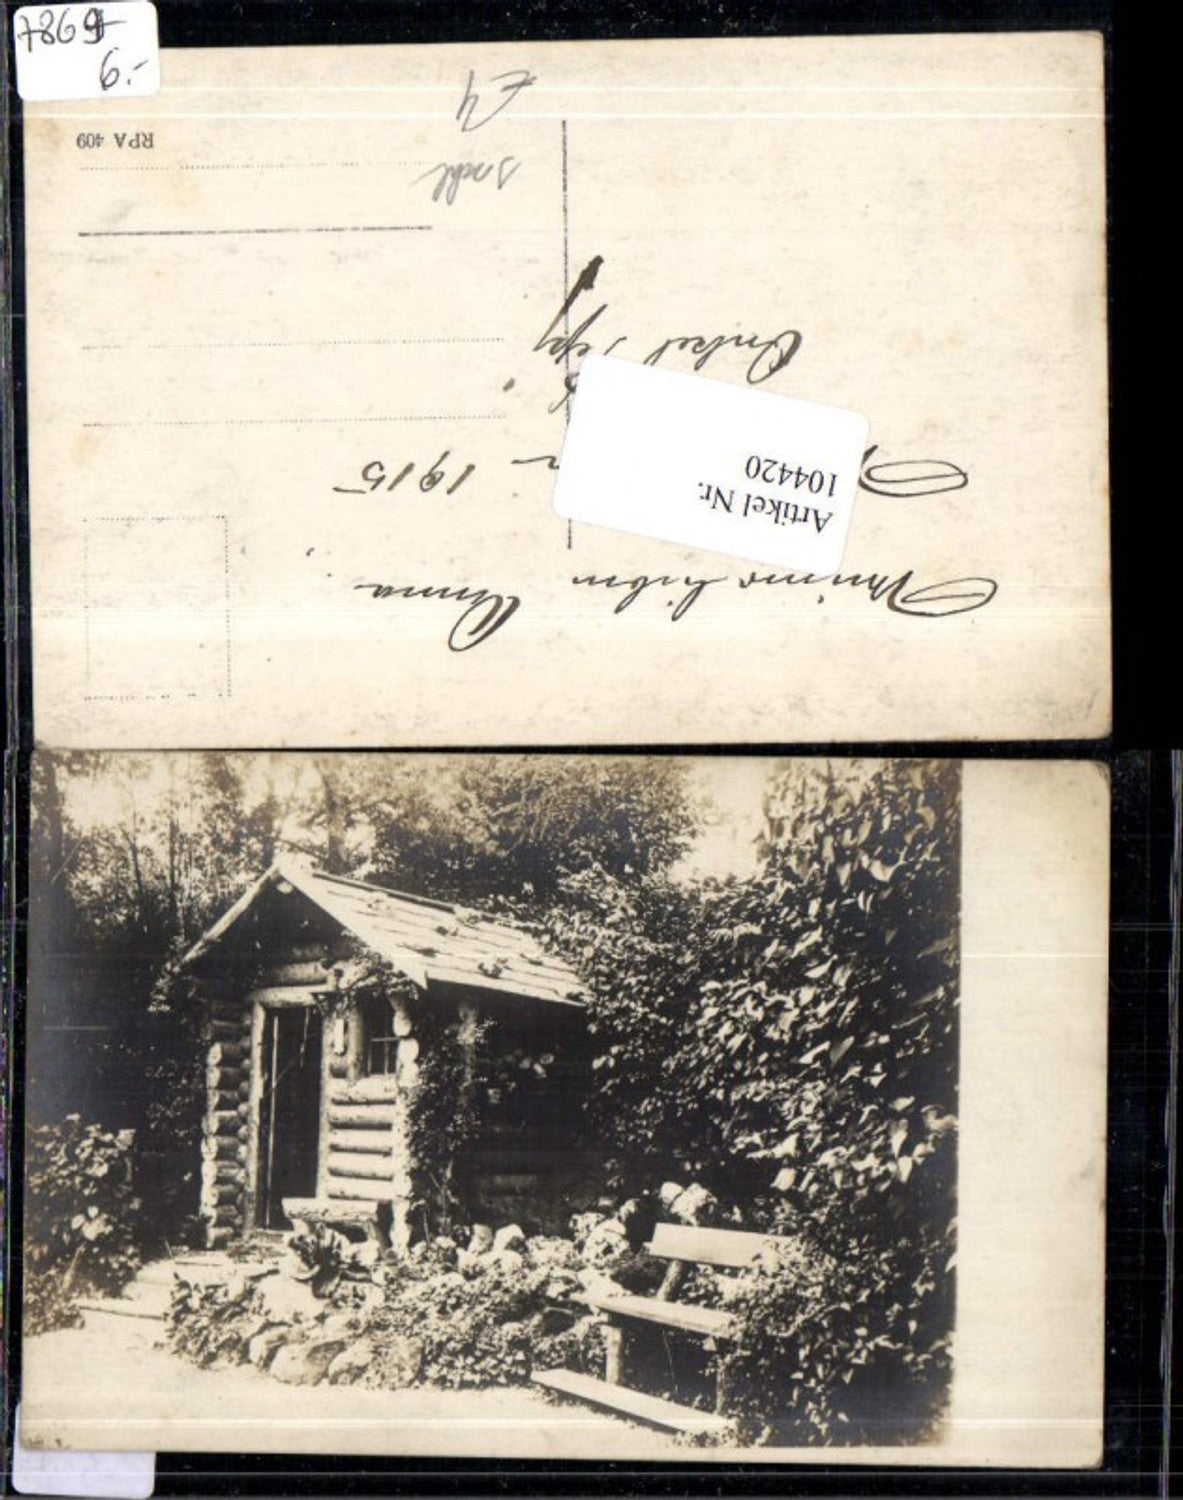 7869
6.-
RPA 409
Meiner lieben Anna
1915
Onkel Pepy
Artikel Nr.
104420